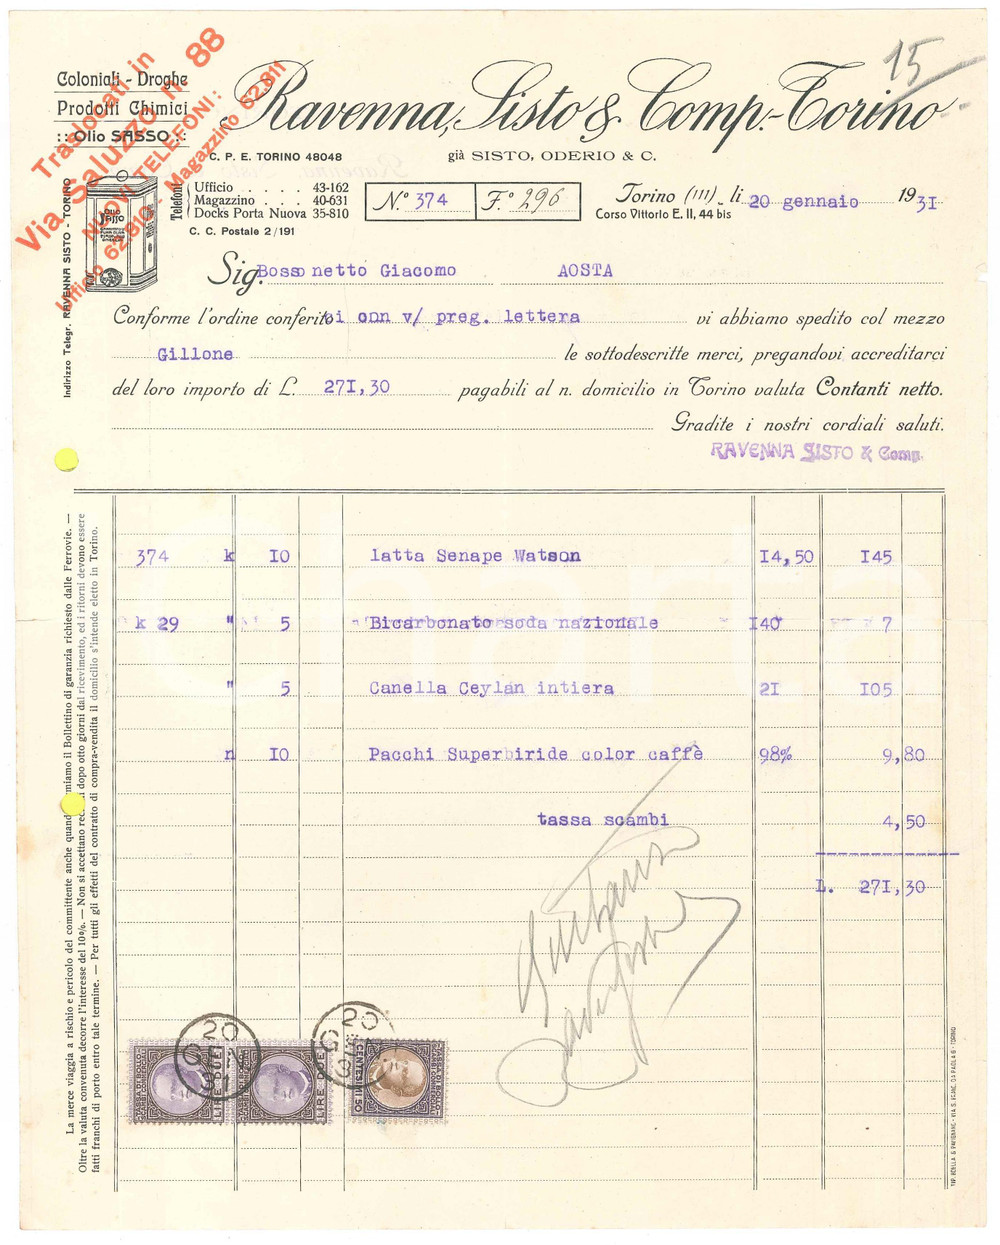 15
Coloniali - Droghe
Prodotti Chimici
:: Olio SASSO ::
Traslocati in
Via Saluzzo n. 88
NUOVI TELEFONI:
Ufficio 62.810 - Magazzino 62.811
Ravenna, Sisto & Comp. - Torino
C. P. E. TORINO 48048
già SISTO, ODERIO & C.
Telefoni
Ufficio . . . . 43-162
Magazzino . . . 40-631
Docks Porta Nuova 35-810
C. C. Postale 2/191
N.° 374 F.° 296
Torino (111), li 20 gennaio 1931
Corso Vittorio E. II, 44 bis
Indirizzo Telegr. RAVENNA SISTO - TORINO
OLIO SASSO
Sig. Bosso netto Giacomo AOSTA
Conforme l'ordine conferitoi onn v/ preg. lettera vi abbiamo spedito col mezzo
Gillone le sottodescritte merci, pregandovi accreditarci
del loro importo di L. 271,30 pagabili al n. domicilio in Torino valuta Contanti netto.
Gradite i nostri cordiali saluti.
RAVENNA SISTO & Comp.
374 k 10 latta Senape Watson 14,50 145
k 29 " 5 Bicarbonato soda nazionale 140 7
" 5 Canella Ceylan intiera 21 105
n 10 Pacchi Superbiride color caffè 98% 9,80
tassa scambi 4,50
L. 271,30
La merce viaggia a rischio e pericolo del committente anche quando miamo il Bollettino di garanzia richiesto dalle Ferrovie. —
Oltre la valuta convenuta decorre l'interesse del 10%. — Non si accettano rec i dopo otto giorni dal ricevimento, ed i ritorni devono essere
fatti franchi di porto entro tale termine. — Per tutti gli effetti del contratto di compra-vendita il domicilio s'intende eletto in Torino.
20
20
LIRE DUE
LIRE DUE
CENTESIMI 50